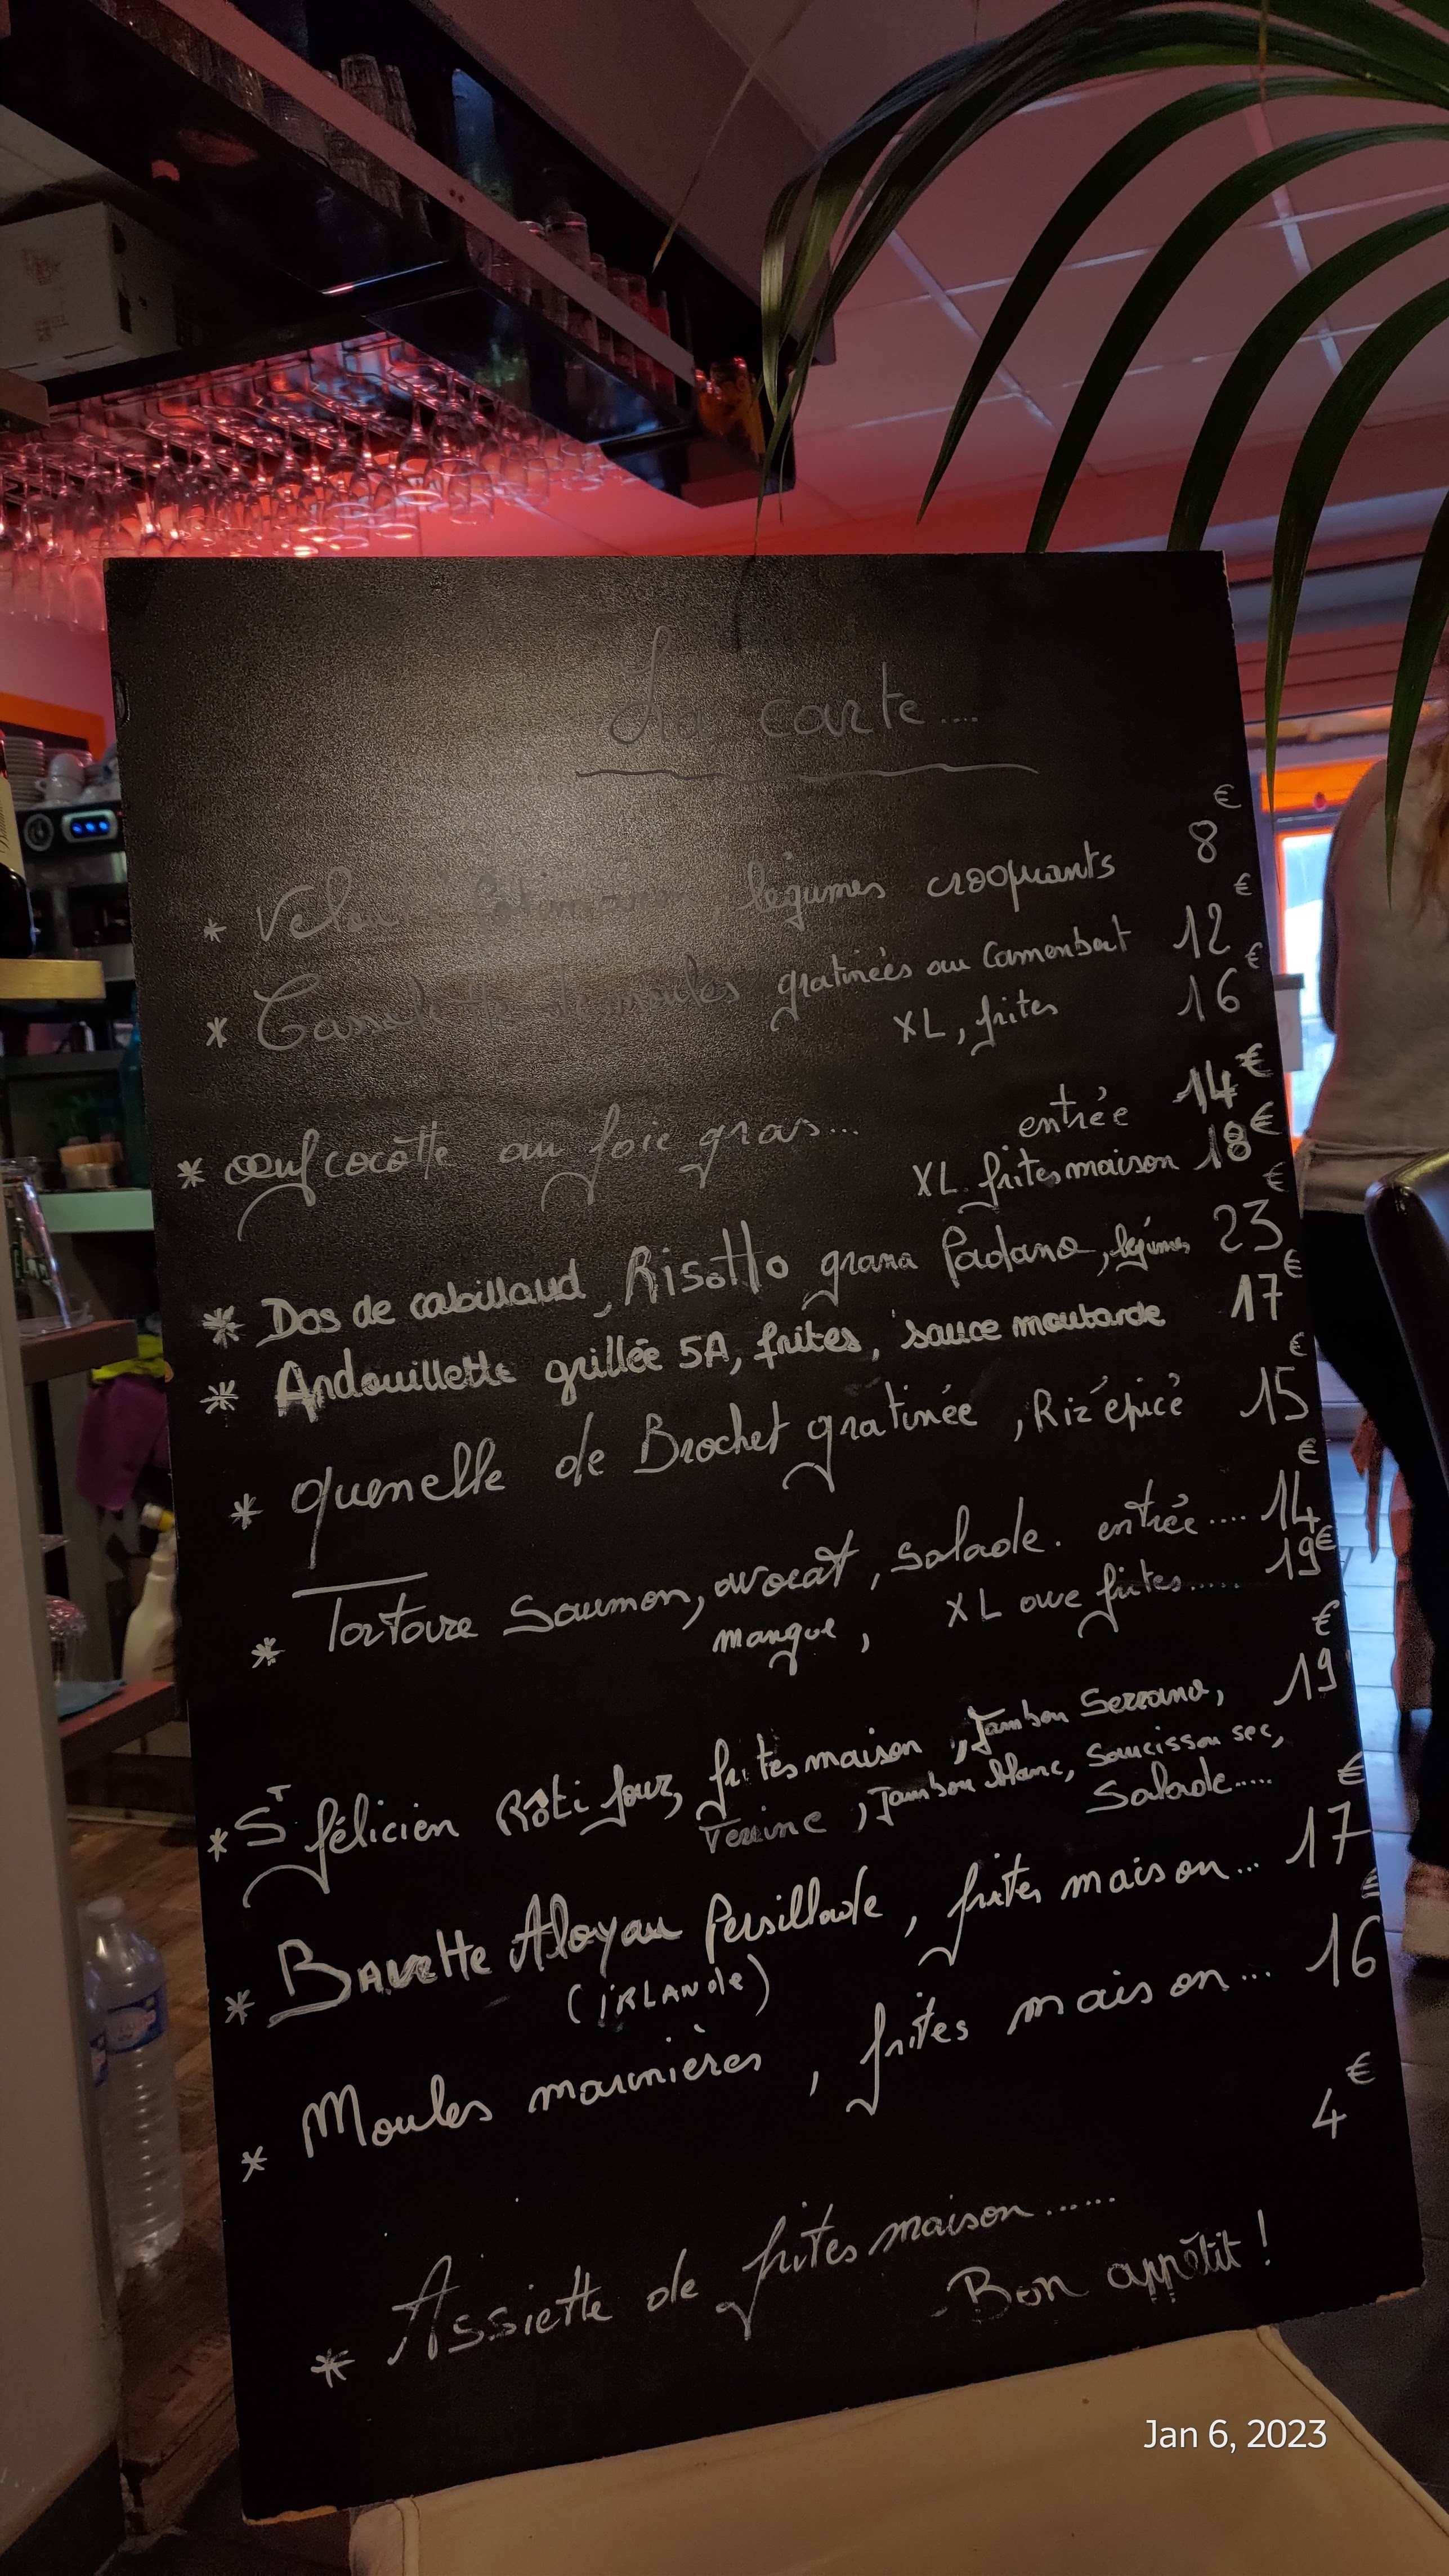 La carte....
* Velouté Potimarron, légumes croquants 8€
* Cassolette de moules gratinées au Camembert 12€
XL, frites 16€
* œuf cocotte au foie gras... entrée 14€
XL frites maison 18€
* Dos de cabillaud, Risotto grana Padano, légumes 23€
* Andouillette grillée 5A, frites, sauce moutarde 17€
* quenelle de Brochet gratinée, Riz épicé 15€
* Tartare Saumon, avocat, salade. entrée.... 14€
mangue, XL avec frites..... 19€
* St félicien Rôti four, frites maison, Jambon Serrano, 19€
Terrine, Jambon blanc, Saucisson sec,
Salade.....
* Bavette Aloyau Persillade, frites maison... 17€
(IRLANDE)
* Moules marinières, frites maison... 16€
* Assiette de frites maison...... 4€
Bon appétit !
Jan 6, 2023